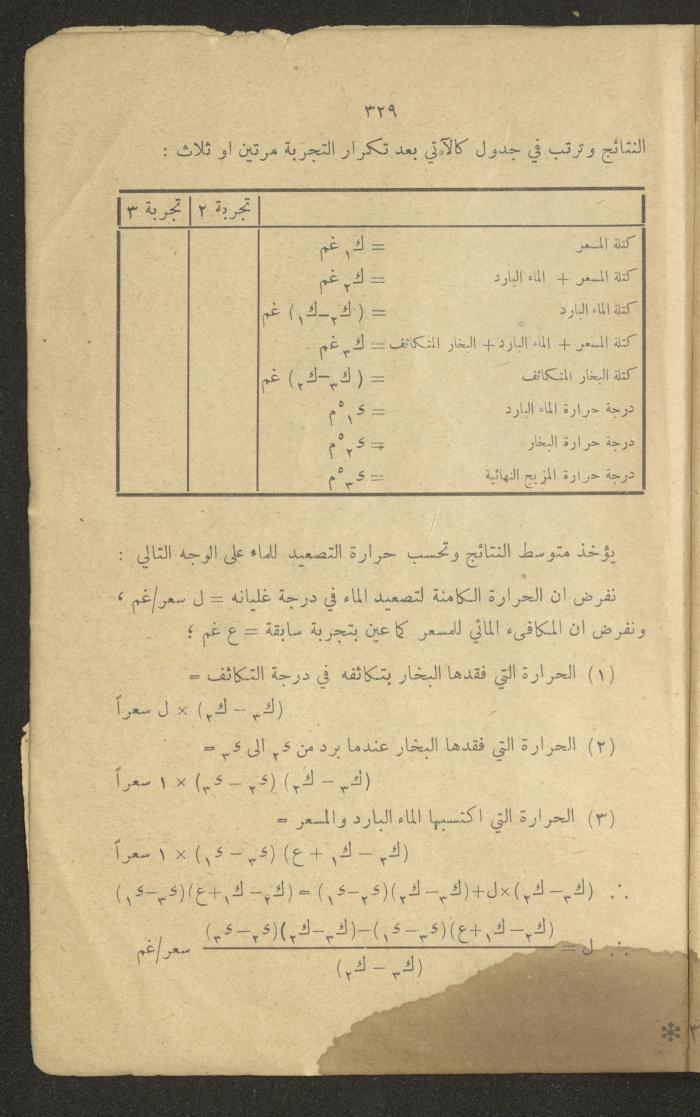 ٣٢٩
النتائج وترتب في جدول كالآتي بعد تكرار التجربة مرتين او ثلاث :
تجربة ٢ تجربة ٣
كتلة المسعر = ك₁ غم
كتلة المسعر + الماء البارد = ك₂ غم
كتلة الماء البارد = (ك₂−ك₁) غم
كتلة المسعر + الماء البارد + البخار المتكاثف = ك₃ غم
كتلة البخار المتكاثف = (ك₃−ك₂) غم
درجة حرارة الماء البارد = د₁ °م
درجة حرارة البخار = د₂ °م
درجة حرارة المزيج النهائية = د₃ °م
يؤخذ متوسط النتائج وتحسب حرارة التصعيد للماء على الوجه التالي :
نفرض ان الحرارة الكامنة لتصعيد الماء في درجة غليانه = ل سعر/غم ،
ونفرض ان المكافىء المائي للمسعر كما عين بتجربة سابقة = ع غم ؛
(١) الحرارة التي فقدها البخار بتكاثفه في درجة التكاثف =
(ك₃ − ك₂) × ل سعراً
(٢) الحرارة التي فقدها البخار عندما برد من د₂ الى د₃ =
(ك₃ − ك₂) (د₂ − د₃) × ١ سعراً
(٣) الحرارة التي اكتسبها الماء البارد والمسعر =
(ك₂ − ك₁ + ع) (د₃ − د₁) × ١ سعراً
∴ (ك₃ − ك₂)×ل+(ك₃−ك₂)(د₂−د₁) = (ك₂−ك₁+ع)(د₃−د₁)
∴ ل = (ك₂−ك₁+ع)(د₃−د₁)−(ك₃−ك₂)(د₂−د₃) سعر/غم
(ك₃ − ك₂)